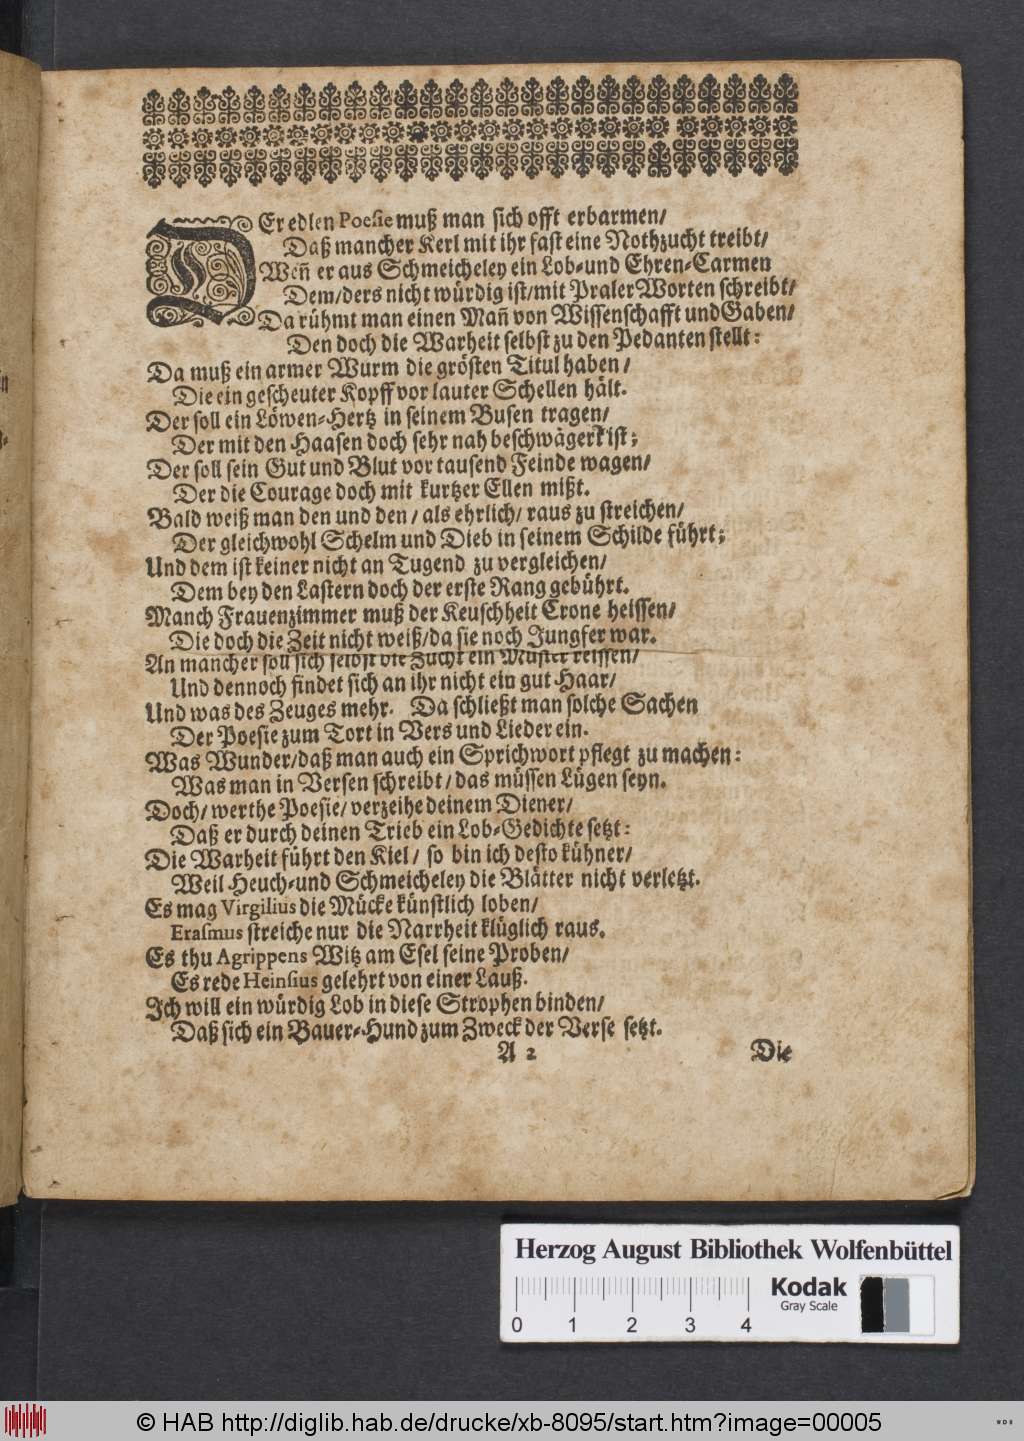 DEr edlen Poesie muß man sich offt erbarmen/
Daß mancher Kerl mit ihr fast eine Nothzucht treibt/
Weñ er aus Schmeicheley ein Lob-und Ehren-Carmen
Dem/ders nicht würdig ist/mit Praler Worten schreibt/
Da rühmt man einen Mañ von Wissenschafft und Gaben/
Den doch die Warheit selbst zu den Pedanten stellt:
Da muß ein armer Wurm die grösten Titul haben/
Die ein gescheuter Kopff vor lauter Schellen hält.
Der soll ein Löwen-Hertz in seinem Busen tragen/
Der mit den Haasen doch sehr nah beschwägert ist;
Der soll sein Gut und Blut vor tausend Feinde wagen/
Der die Courage doch mit kurtzer Ellen mißt.
Bald weiß man den und den/ als ehrlich/ raus zu streichen/
Der gleichwohl Schelm und Dieb in seinem Schilde führt;
Und dem ist keiner nicht an Tugend zu vergleichen/
Dem bey den Lastern doch der erste Rang gebührt.
Manch Frauenzimmer muß der Keuschheit Crone heissen/
Die doch die Zeit nicht weiß/da sie noch Jungfer war.
An mancher soll sich selbst die Zucht ein Muster reissen/
Und dennoch findet sich an ihr nicht ein gut Haar/
Und was des Zeuges mehr. Da schließt man solche Sachen
Der Poesie zum Tort in Vers und Lieder ein.
Was Wunder/daß man auch ein Sprichwort pflegt zu machen:
Was man in Versen schreibt/ das müssen Lügen seyn.
Doch/ werthe Poesie/ verzeihe deinem Diener/
Daß er durch deinen Trieb ein Lob-Gedichte setzt:
Die Warheit führt den Kiel/ so bin ich desto kühner/
Weil Heuch-und Schmeicheley die Blätter nicht verletzt.
Es mag Virgilius die Mücke künstlich loben/
Erasmus streiche nur die Narrheit klüglich raus.
Es thu Agrippens Witz am Esel seine Proben/
Es rede Heinsius gelehrt von einer Lauß.
Ich will ein würdig Lob in diese Strophen binden/
Daß sich ein Bauer-Hund zum Zweck der Verse setzt.
A 2
Die
Herzog August Bibliothek Wolfenbüttel
0 1 2 3 4
Kodak
Gray Scale
© HAB http://diglib.hab.de/drucke/xb-8095/start.htm?image=00005